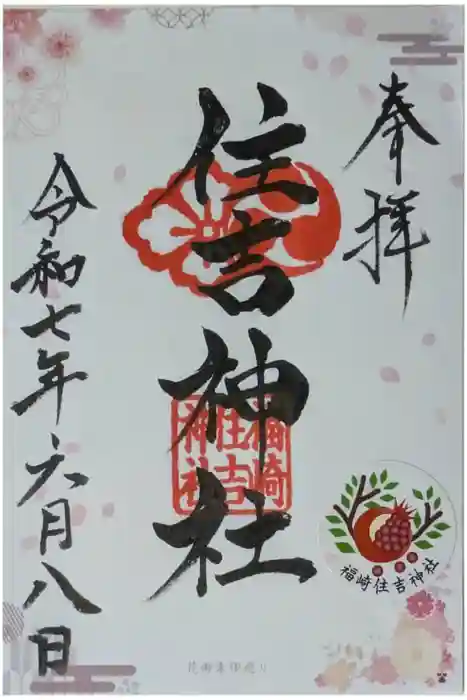 奉拝
住吉神社
福崎
住吉
神社
令和七年六月八日
福崎住吉神社
花御朱印巡り